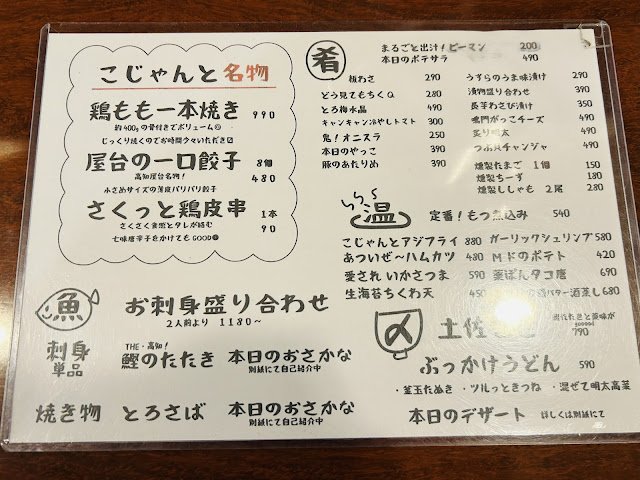 こじゃんと名物
鶏もも一本焼き 990
約400gの骨付きでボリューム
じっくり焼くのでお時間少々いただき
屋台の一口餃子 8個 480
高知屋台名物!
小さめサイズの薄皮パリパリ餃子
さくっと鶏皮串 1本 90
さくさく食感とタレが絡む
七味唐辛子をかけてもGOOD
魚
お刺身盛り合わせ
2人前より 1180~
刺身
単品
THE・高知!
鰹のたたき 本日のおさかな
別紙にて自己紹介中
焼き物 とろさば 本日のおさかな
別紙にて自己紹介中
肴
まるごと出汁!ピーマン 200
本日のポテサラ 490
板わさ 290
どう見てもちくQ 280
とろ梅水晶 290
キャンキャン冷やしトマト 300
鬼!オニスラ 250
本日のやっこ 390
豚のあたりめ 390
うずらのうま味漬け 290
漬物盛り合わせ 390
長芋わさび漬け 350
鳴門がっこチーズ 390
炙り明太 490
つぶ貝チャンジャ 390
燻製たまご 1個 150
燻製ちーず 180
燻製ししゃも 2尾 280
温
定番!もつ煮込み 540
こじゃんとアジフライ 880
あついぜ~ハムカツ 480
愛され いかさつま 590
生海苔ちくわ天 450
ガーリックシュリンプ 580
Mドのポテト 420
釜ぽんタコ唐 690
バター酒蒸し 680
〆
土佐
790
ぶっかけうどん 590
・釜玉たぬき ・ツルっときつね ・混ぜて明太高菜
本日のデザート 詳しくは別紙にて